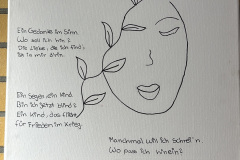 Ein Gedanke im Sinn.
Wo soll ich hin?
Die Liebe, die ich find,
sie in mir drin.
Ein Segen, ein Kind.
Bin ich jetzt blind?
Ein Kind, das
für Frieden im Krieg.
Manchmal will ich schrei'n.
Wo pass ich hinein?